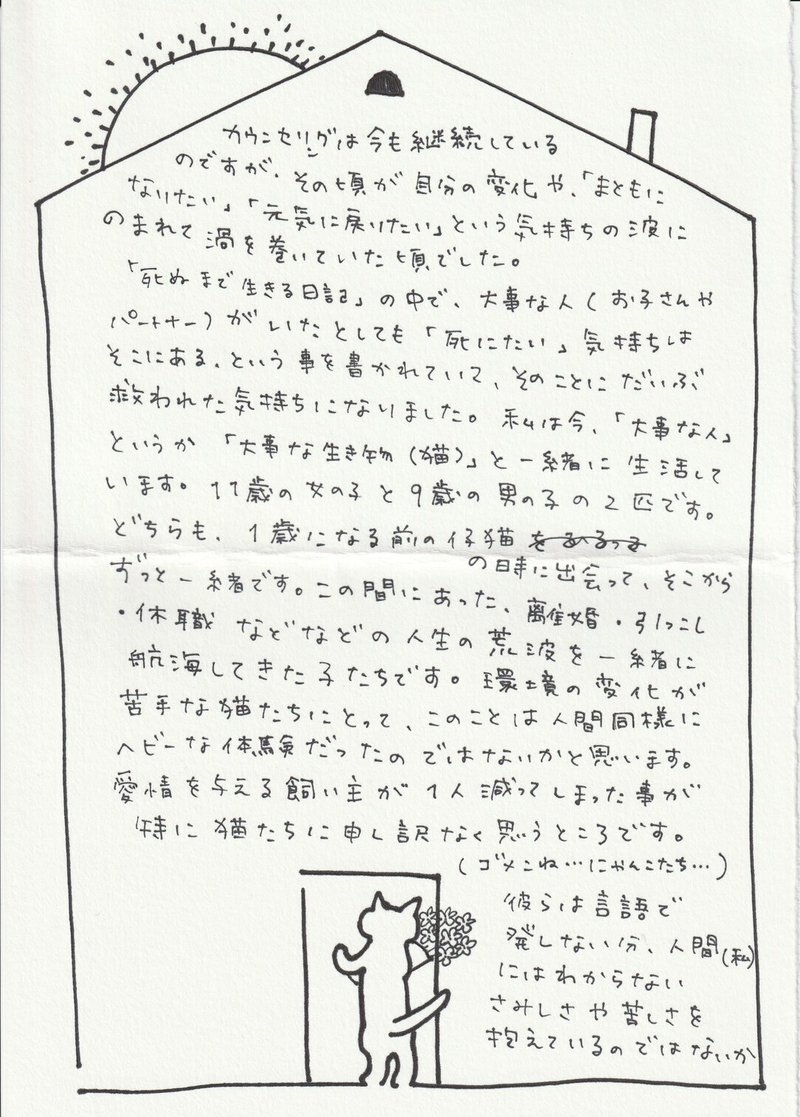 カウンセリングは今も継続している
のですが、その頃が自分の変化や、「まともに
なりたい」「元気に戻りたい」という気持ちの波に
のまれて渦を巻いていた頃でした。
「死ぬまで生きる日記」の中で、大事な人(お子さんや
パートナー)がいたとしても「死にたい」気持ちは
そこにある、という事を書かれていて、そのことにだいぶ
救われた気持ちになりました。私は今、「大事な人」
というか「大事な生き物(猫)」と一緒に生活して
います。11歳の女の子と9歳の男の子の2匹です。
どちらも、1歳になる前の仔猫
の時に出会って、そこから
ずっと一緒です。この間にあった、離婚・引っこし
・休職などなどの人生の荒波を一緒に
航海してきた子たちです。環境の変化が
苦手な猫たちにとって、このことは人間同様に
ヘビーな体験だったのではないかと思います。
愛情を与える飼い主が1人減ってしまった事が
特に猫たちに申し訳なく思うところです。
(ゴメンね…にゃんこたち…)
彼らは言語で
発しない分、人間(私)
にはわからない
さみしさや苦しさを
抱えているのではないか